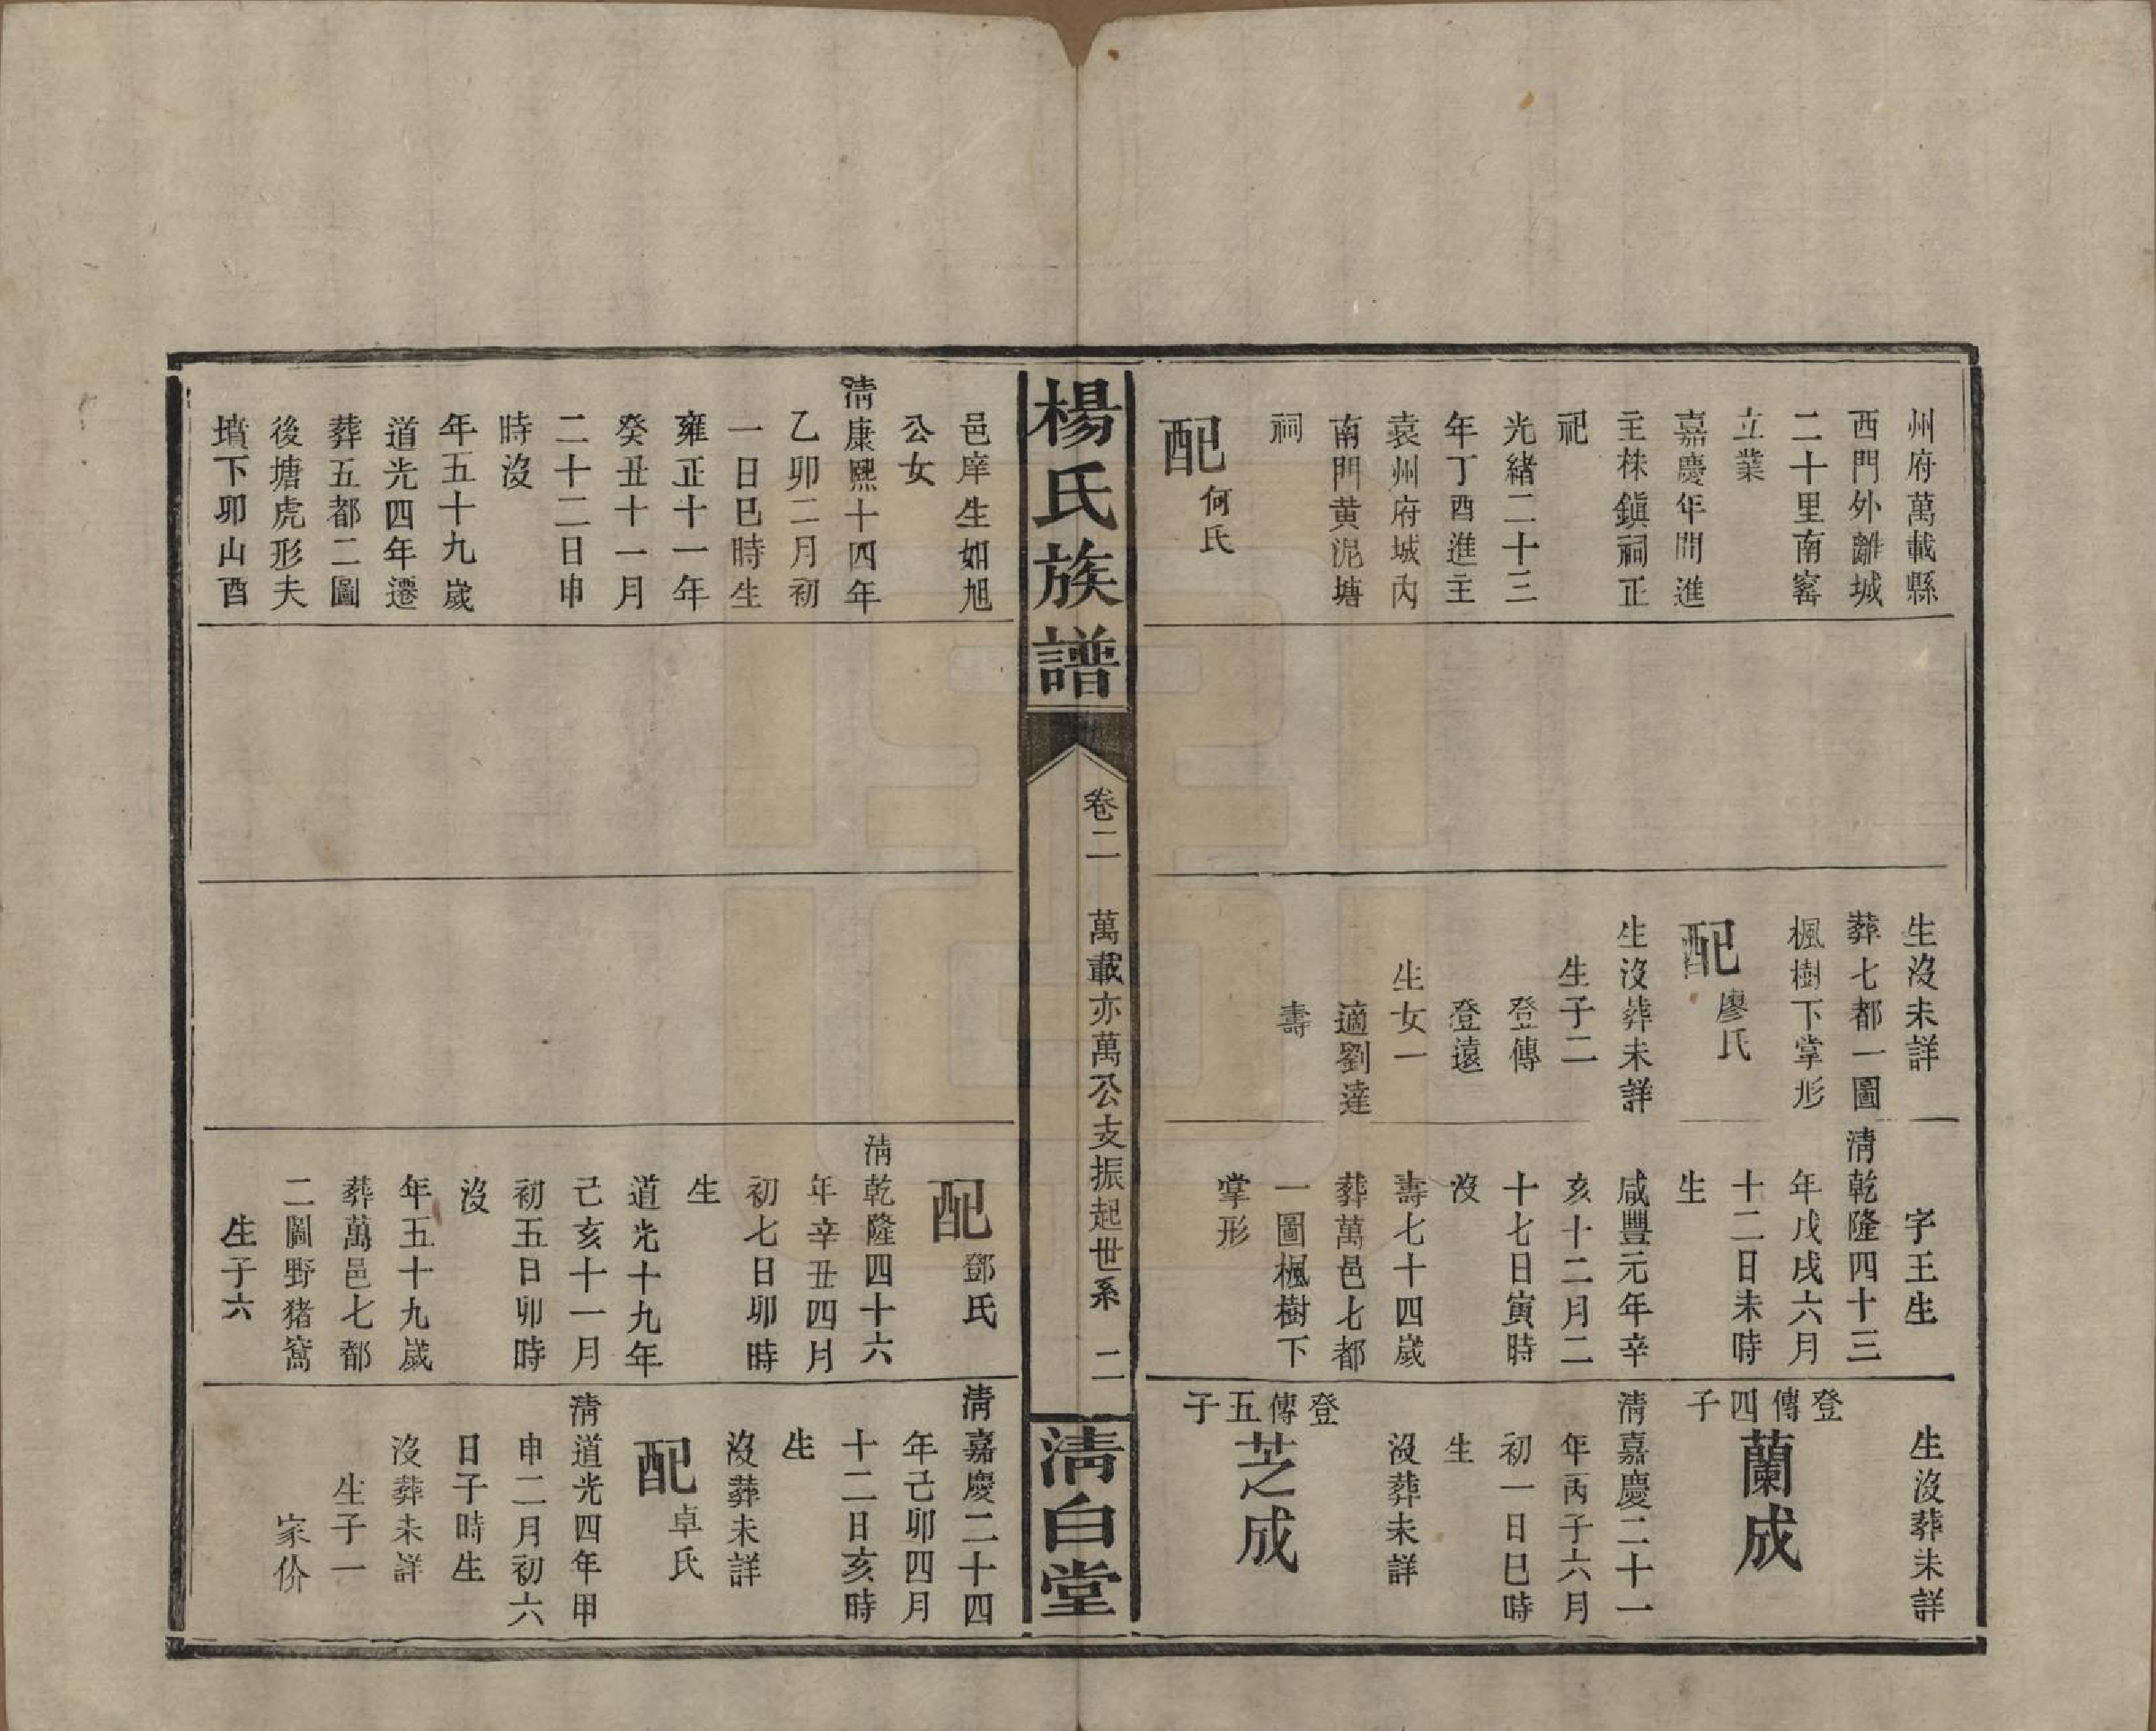 州府萬載縣
西門外離城
二十里南窰
立業
嘉慶年間進
主株鎭祠正
祀
光緒二十三
年丁酉進主
袁州府城內
南門黄泥塘
祠
配何氏
生沒未詳
葬七都一圖
楓樹下掌形
配廖氏
生沒葬未詳
生子二
登傳
登遠
生女一
適劉達
壽
字王生
淸乾隆四十三
年戊戌六月
十二日未時
生
咸豐元年辛
亥十二月二
十七日寅時
沒
壽七十四歲
葬萬邑七都
一圖楓樹下
掌形
生沒葬未詳
登傳四子
蘭成
淸嘉慶二十一
年丙子六月
初一日巳時
生
沒葬未詳
登傳五子
芝成
楊氏族譜
卷二 萬載亦萬公支振起世系 二
淸白堂
邑庠生如旭
公女
淸康熙十四年
乙卯二月初
一日巳時生
雍正十一年
癸丑十一月
二十二日申
時沒
年五十九歲
道光四年遷
葬五都二圖
後塘虎形夫
墳下卯山酉
配鄧氏
淸乾隆四十六
年辛丑四月
初七日卯時
生
道光十九年
己亥十一月
初五日卯時
沒
年五十九歲
葬萬邑七都
二圖野猪窩
生子六
淸嘉慶二十四
年己卯四月
十二日亥時
生
沒葬未詳
配卓氏
淸道光四年甲
申二月初六
日子時生
沒葬未詳
生子一
家份